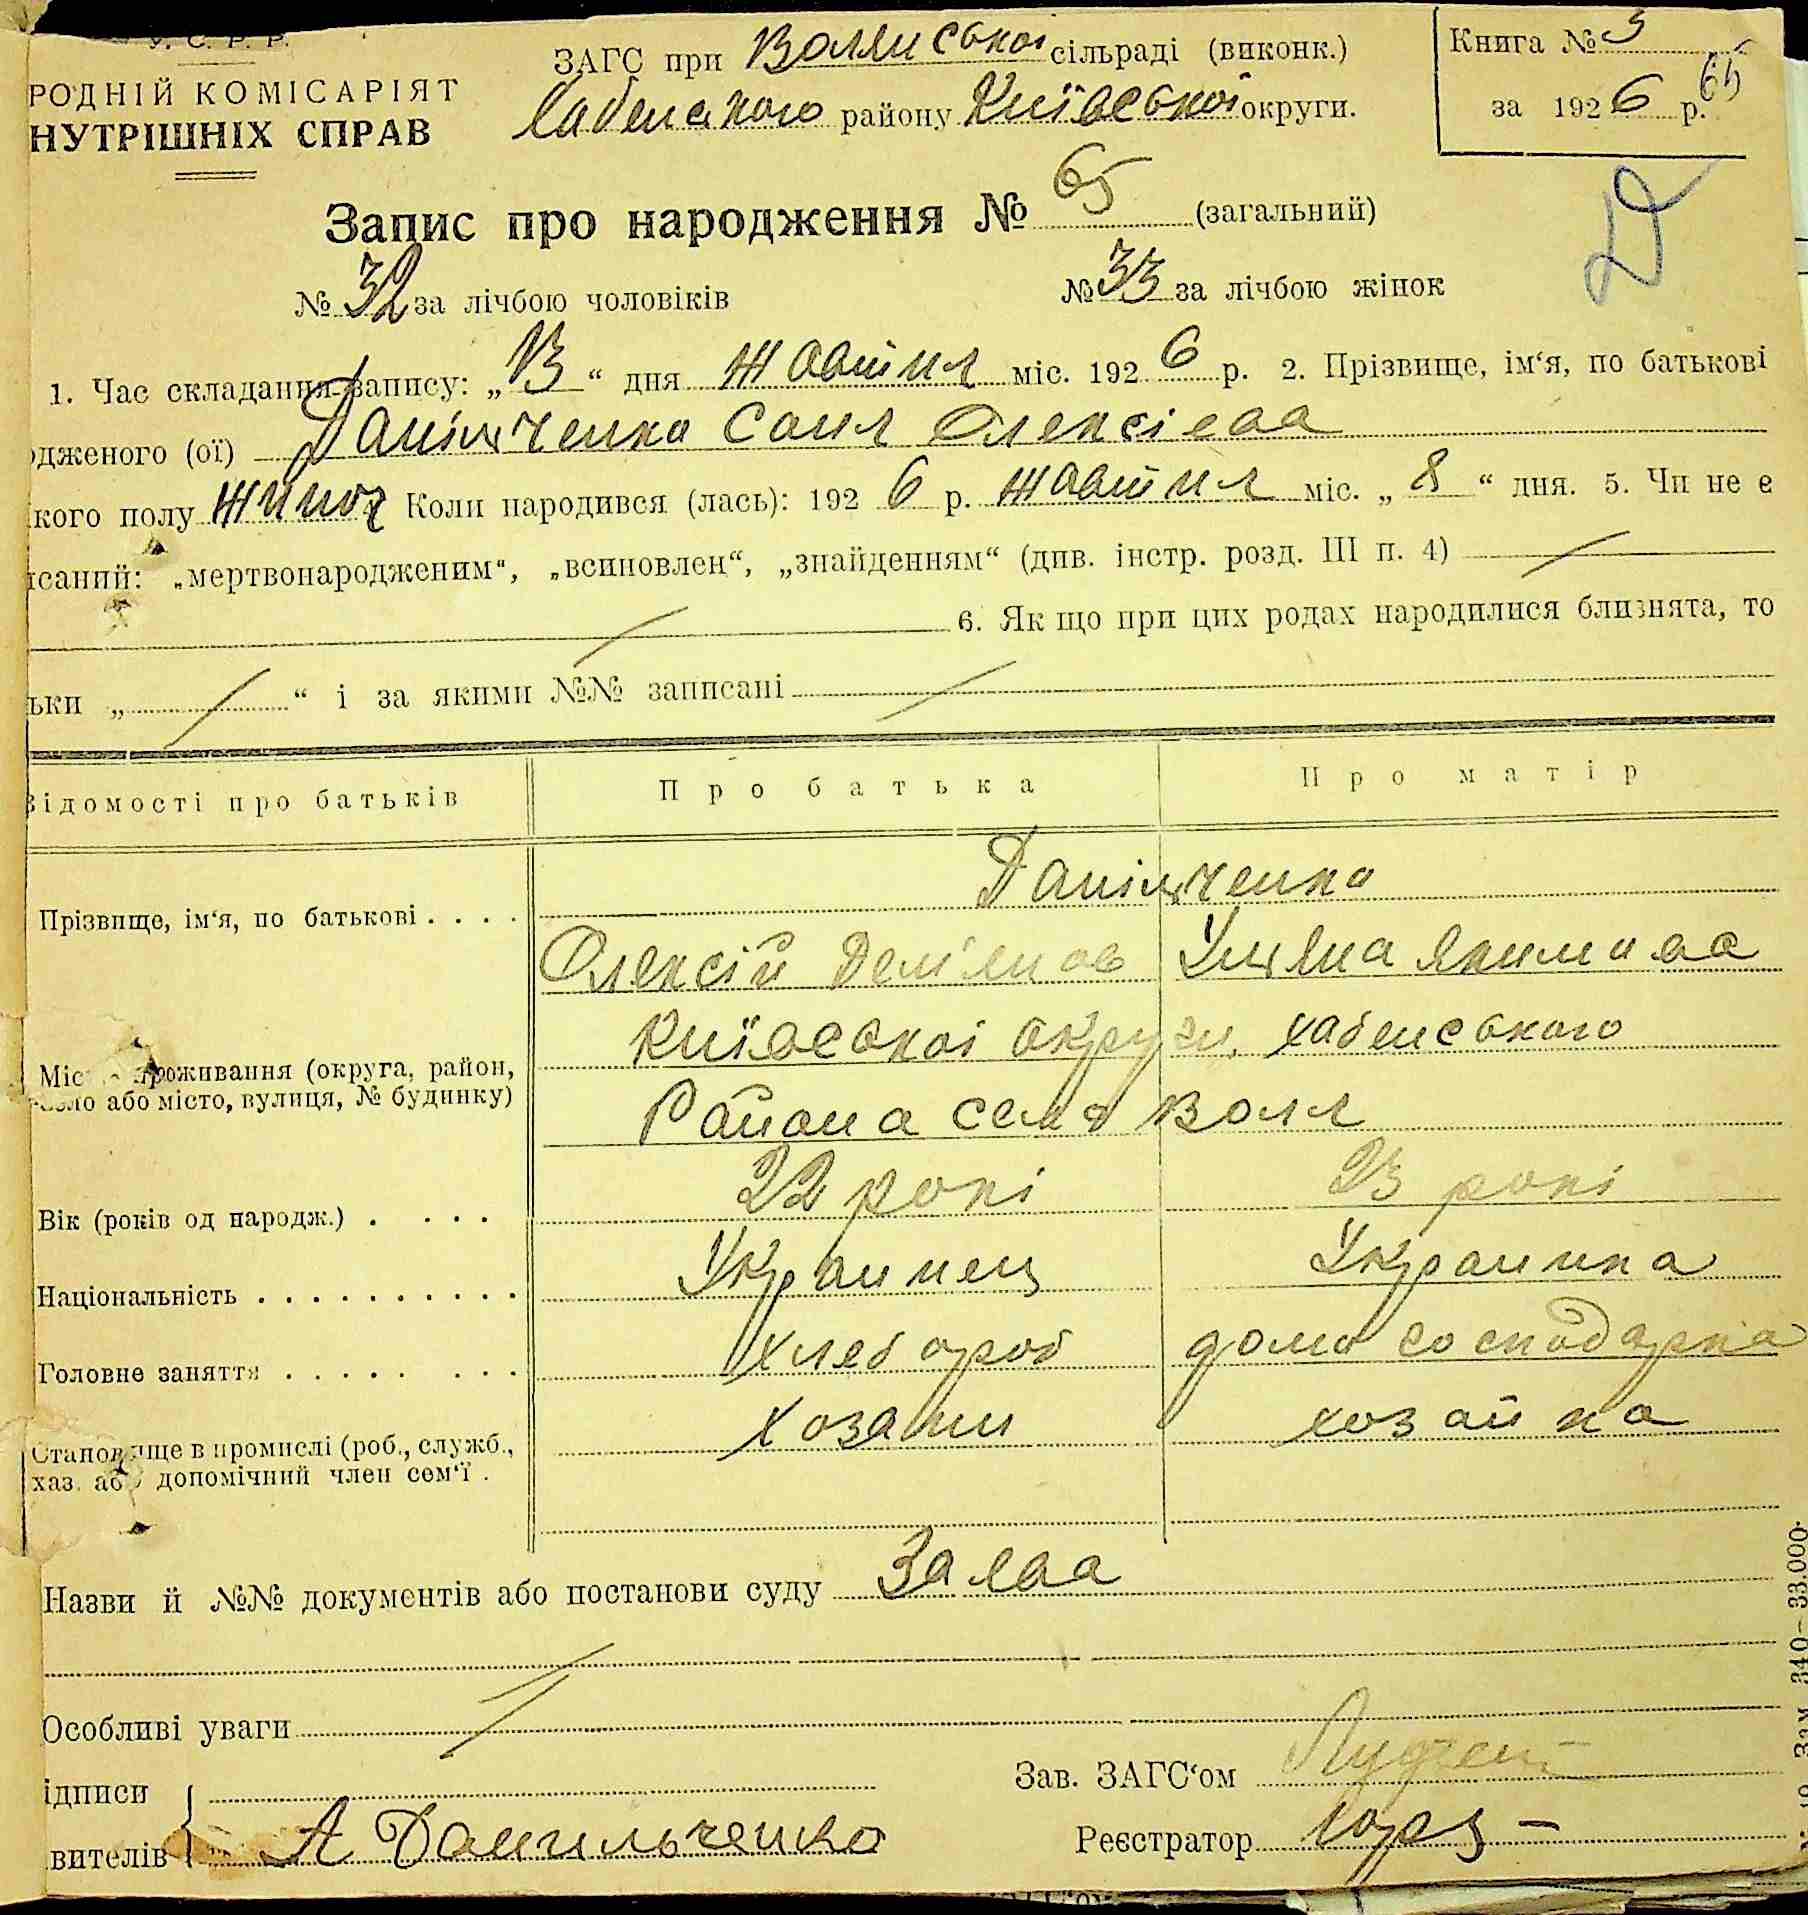 У. С. Р. Р.
ЗАГС при Волянської сільраді (виконк.)
Книга № 3
РОДНІЙ КОМІСАРІЯТ
Хабенського району Київської округи.
за 1926 р. 65
НУТРІШНІХ СПРАВ
Запис про народження № 65 (загальний)
№ 32 за лічбою чоловіків № 33 за лічбою жінок
1. Час складання запису: „13“ дня жовтня міс. 1926 р. 2. Прізвище, ім‘я, по батькові
дженого (ої) Даніьченко Соня Олексієва
кого полу жіноч Коли народився (лась): 1926 р. жовтня міс. „8“ дня. 5. Чи не є
исаний: „мертвонародженим“, „всиновлен“, „знайденням“ (див. інстр. розд. III п. 4)
6. Як що при цих родах народилися близнята, то
ьки „ “ і за якими №№ записані
Відомості про батьків Про батька Про матір
Данільченко
Прізвище, ім‘я, по батькові . . . .
Олексій Демянов Уляна Якимова
Київської округи, хабенського
Міс проживання (округа, район,
село або місто, вулиця, № будинку)
Района село Воля
Вік (років од народж.) . . . . 22 рокі 23 рокі
Національність . . . . . . . . . . Украинец Украинка
Головне заняття . . . . . . . . хлебороб домогосподарка
Становище в промислі (роб., служб.,
хаз. або допомічний член сем‘ї . хозаин хозайка
Назви й №№ документів або постанови суду Заява
Особливі уваги
Зав. ЗАГС‘ом
ідписи
вителів А Данильченко Реєстратор
Зам 340—33.000.